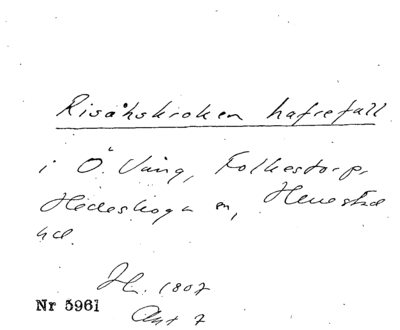 Risåhskroken hafrefall
i Ö. Vång, Folkestorp,
Hedeskoga sn, Herrestad
hd.
H. 1807
Akt 7
Nr 5961